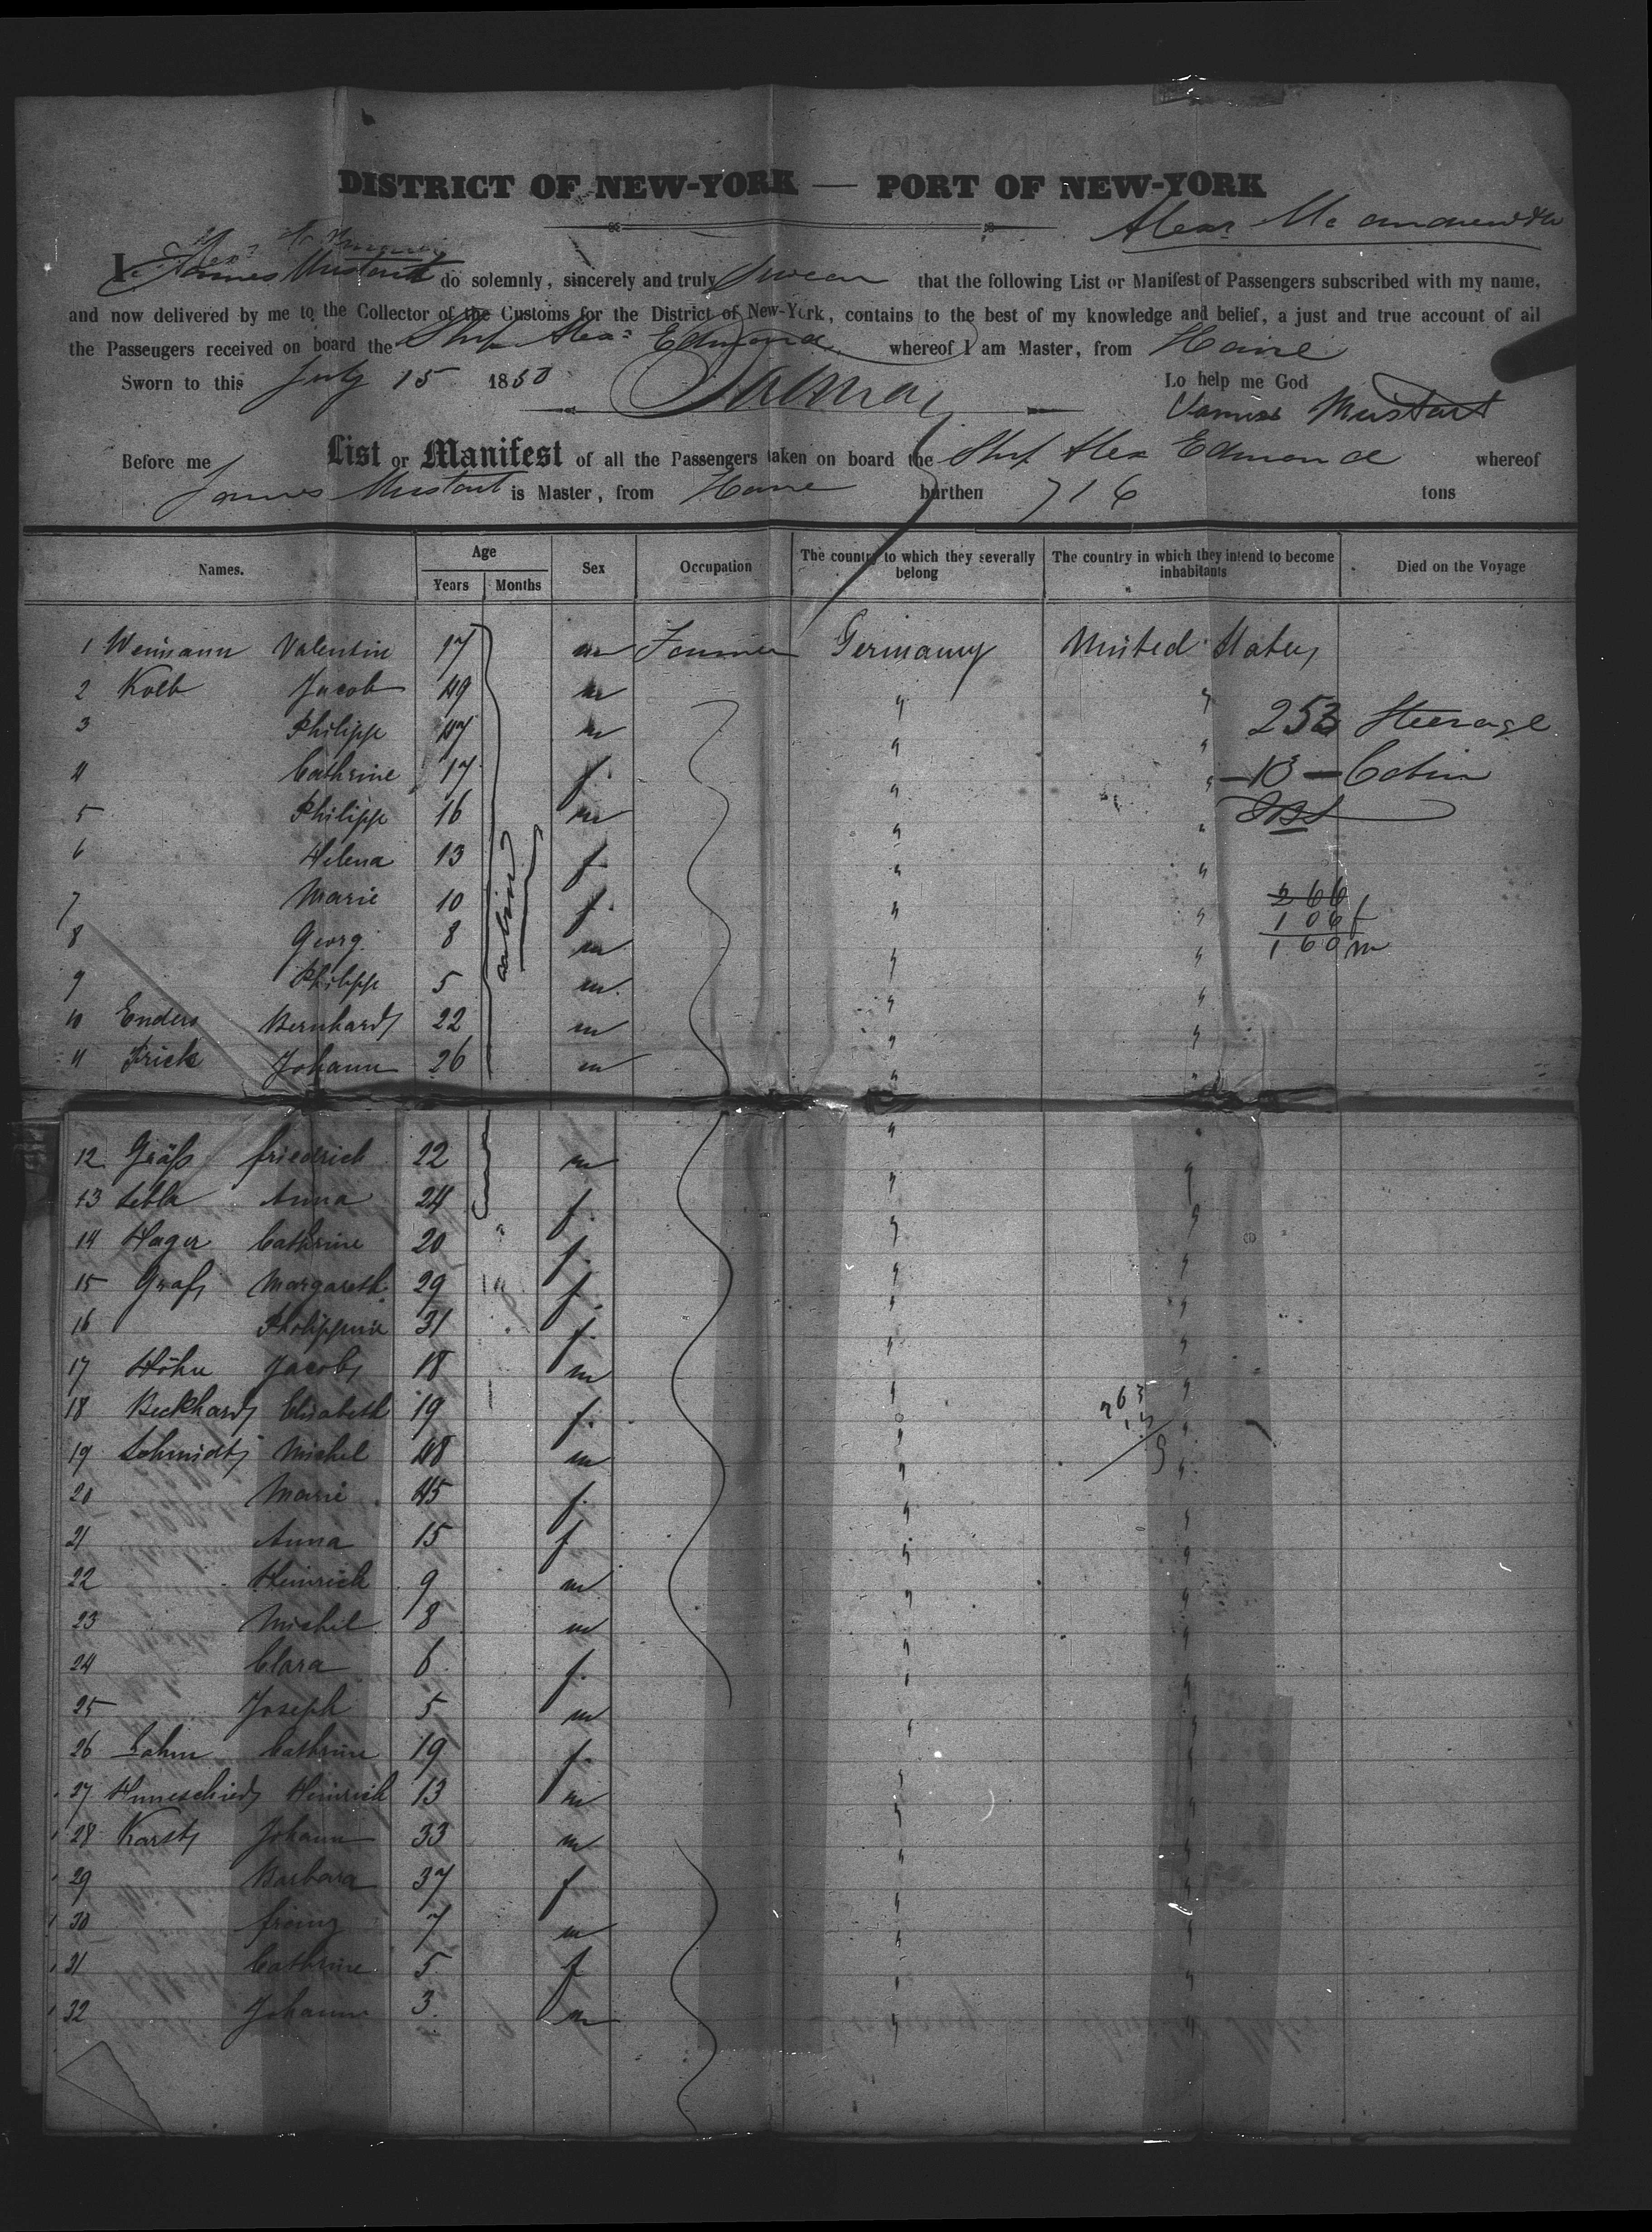 DISTRICT OF NEW-YORK — PORT OF NEW-YORK
I James Mustart do solemnly, sincerely and truly swear that the following List or Manifest of Passengers subscribed with my name,
and now delivered by me to the Collector of the Customs for the District of New-York, contains to the best of my knowledge and belief, a just and true account of all
the Passengers received on board the Ship Alex Edmond whereof I am Master, from Havre
Sworn to this July 15 1850 So help me God
James Mustart
Before me List or Manifest of all the Passengers taken on board the Ship Alex Edmond whereof
James Mustart is Master, from Havre burthen 716 tons
Names. Age Years Months Sex Occupation The country to which they severally belong The country in which they intend to become inhabitants Died on the Voyage
1 Weimann Valentin 17 m Farmer Germany United States
2 Kolb Jacob 49 m " "
3 Philipp 47 m " " 253 Steerage
4 Cathrine 17 f. " " 13 Cabin
5 Philipp 16 m " "
6 Helena 13 f. " "
7 Marie 10 f. " " 266
106 f
8 Georg 8 m " " 160 m
9 Philipp 5 m. " "
10 Enders Bernhard 22 m " "
11 Frick Johann 26 m " "
cabin
12 Gräfs friedrich 22 m " "
13 Anna 24 f. " "
14 Hager Cathrine 20 f. " "
15 Grafs Margareth 29 f. " "
16 Philippine 31 f. " "
17 Höhn Jacob 18 m " "
18 Beckhard Elisabeth 19 f. " " 263
19 Schmidt Michel 48 m " "
20 Marie 45 f. " "
21 Anna 15 f " "
22 Heinrich 9 m " "
23 Michel 8 m " "
24 Clara 6 f. " "
25 Joseph 5 m " "
26 Lahm Cathrine 19 f. " "
27 Heinrich 13 m " "
28 Karst Johann 33 m " "
29 Barbara 37 f " "
30 franz 7 m " "
31 Cathrine 5 f " "
32 Johann 3 m " "